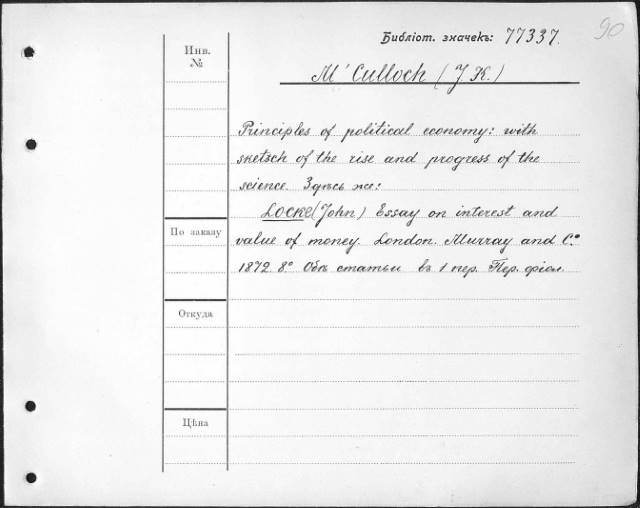 Библіот. значекъ: 77337.
90
Инв.
№
M'Culloch (J. K.)
Principles of political economy: with
sketsch of the rise and progress of the
science. Здѣсь же:
Locke (John) Essay on interest and
По заказу
value of money. London. Murray and Cº
1872. 8º Обѣ статьи въ 1 пер. Пер. фіол.
Откуда
Цѣна